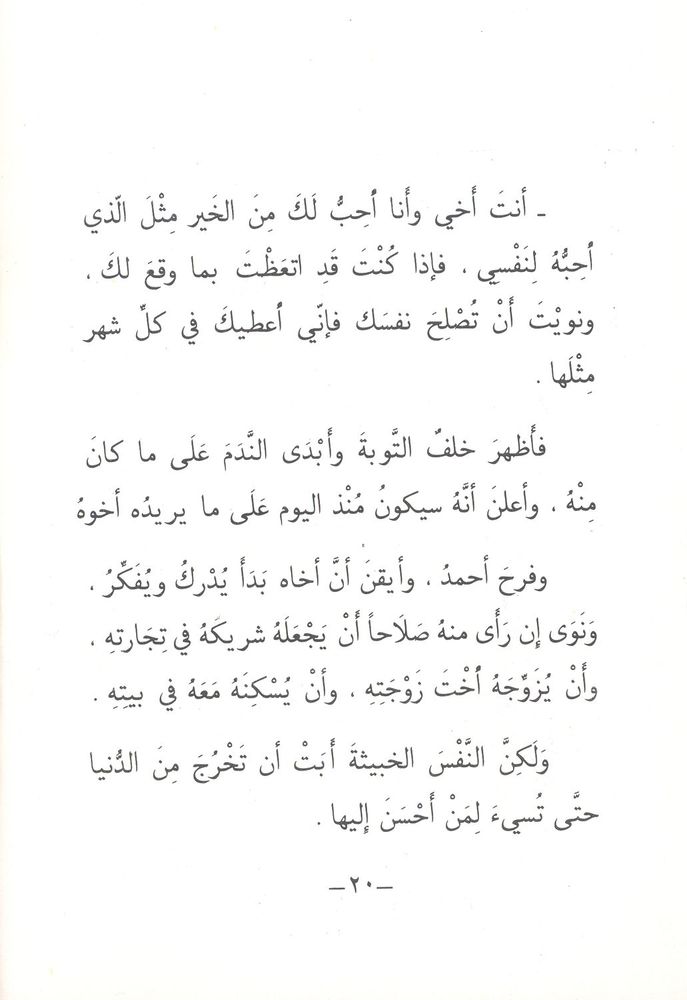 ـ أنتَ أَخي وأَنا اُحِبُّ لَكَ مِنَ الخَير مِثْلَ الّذي
اُحِبُّهُ لِنَفْسِي ، فإذا كُنْتَ قَدِ اتعَظْتَ بما وقعَ لكَ ،
ونويْتَ أَنْ تُصْلِحَ نفسَك فإنّي اُعطيكَ في كلِّ شهر
مِثْلَها .
فأَظهرَ خلفٌ التَّوبةَ وأَبْدَى النَّدَمَ عَلَى ما كانَ
مِنْهُ ، وأعلنَ أنَّهُ سيكونُ مُنْذ اليوم عَلَى ما يريدُه أخوهُ
وفرحَ أحمدُ ، وأيقنَ أنَّ أخاه بَدَأَ يُدْركُ ويُفَكِّرُ ،
وَنَوَى إن رَأَى منهُ صَلَاحاً أَنْ يَجْعَلَهُ شريكَهُ في تِجَارتهِ ،
وأَنْ يُزَوِّجَهُ اُخْتَ زَوْجَتِهِ ، وأنْ يُسْكِنَهُ مَعَهُ في بيتِهِ .
وَلَكِنَّ النَّفْسَ الخبيثةَ أَبَتْ أن تَخْرُجَ مِنَ الدُّنيا
حتَّى تُسيءَ لِمَنْ أَحْسَنَ إِليها .
ـ٢٠ـ